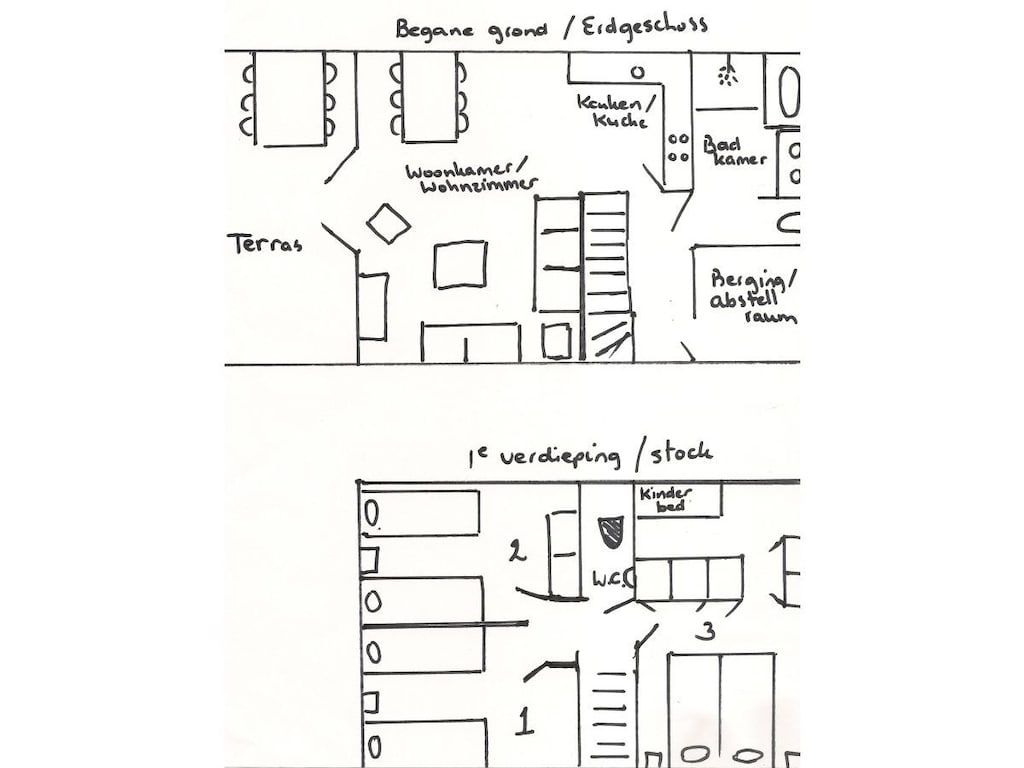 Begane grond / Erdgeschoss
Keuken/
Kuche
Bad
kamer
Woonkamer/
Wohnzimmer
Terras
Berging/
abstell
raum
1e verdieping / stock
Kinder
bed
2
W.C.
3
1